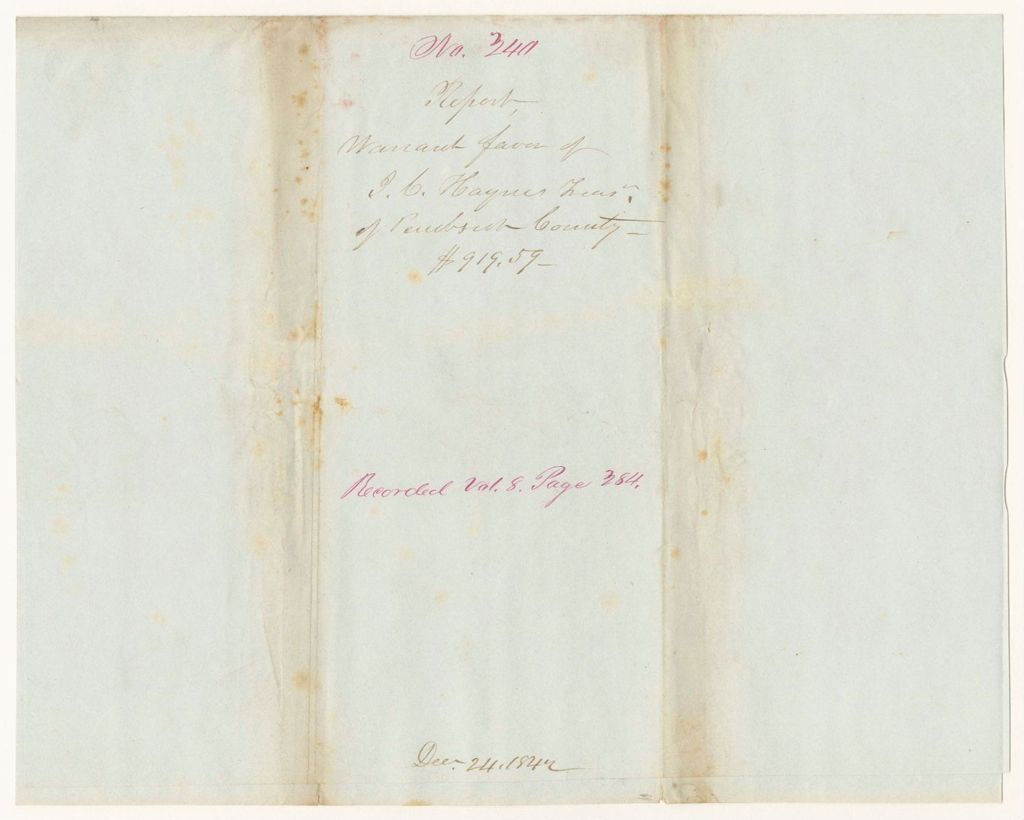 No. 340
Report,
Warrant favor of
J. C. Haynes Treasr.
of Penobscot County—
$919.59—
Recorded Vol. 8. Page 384.
Decr. 24. 1842